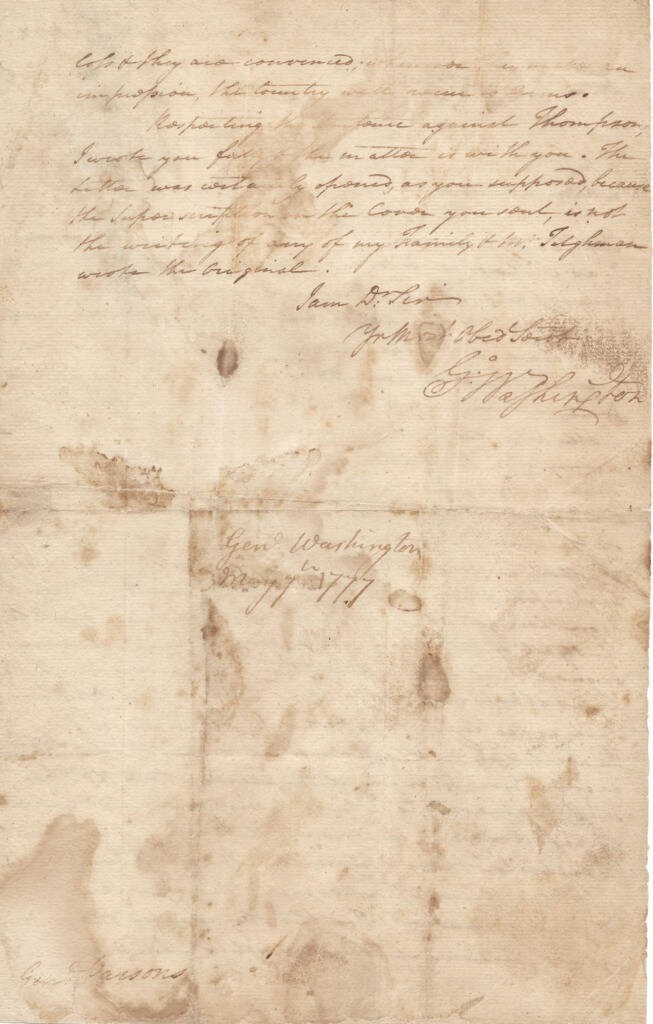 loss & they are convinced, whenever they make an
impression, the Country will
Respecting the against Thompson,
I wrote you fully & the matter is with you. The
Letter was certainly opened, as you supposed, because
the Superscription on the Cover you sent, is not
the writing of any of my Family & Mr. Tilghman
wrote the Original.
I am Dr Sir
Yr Most Obed Servt
Go Washington
Genl Washington
May 7th 1777
Genl Parsons